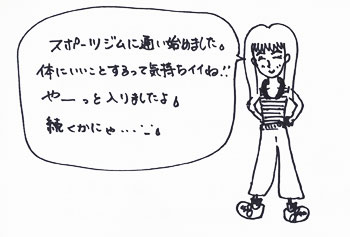 スポーツジムに通い始めました。
体にいいことするって気持ちイイね!!
やーっと入りましたよ。
続くかにゃ...